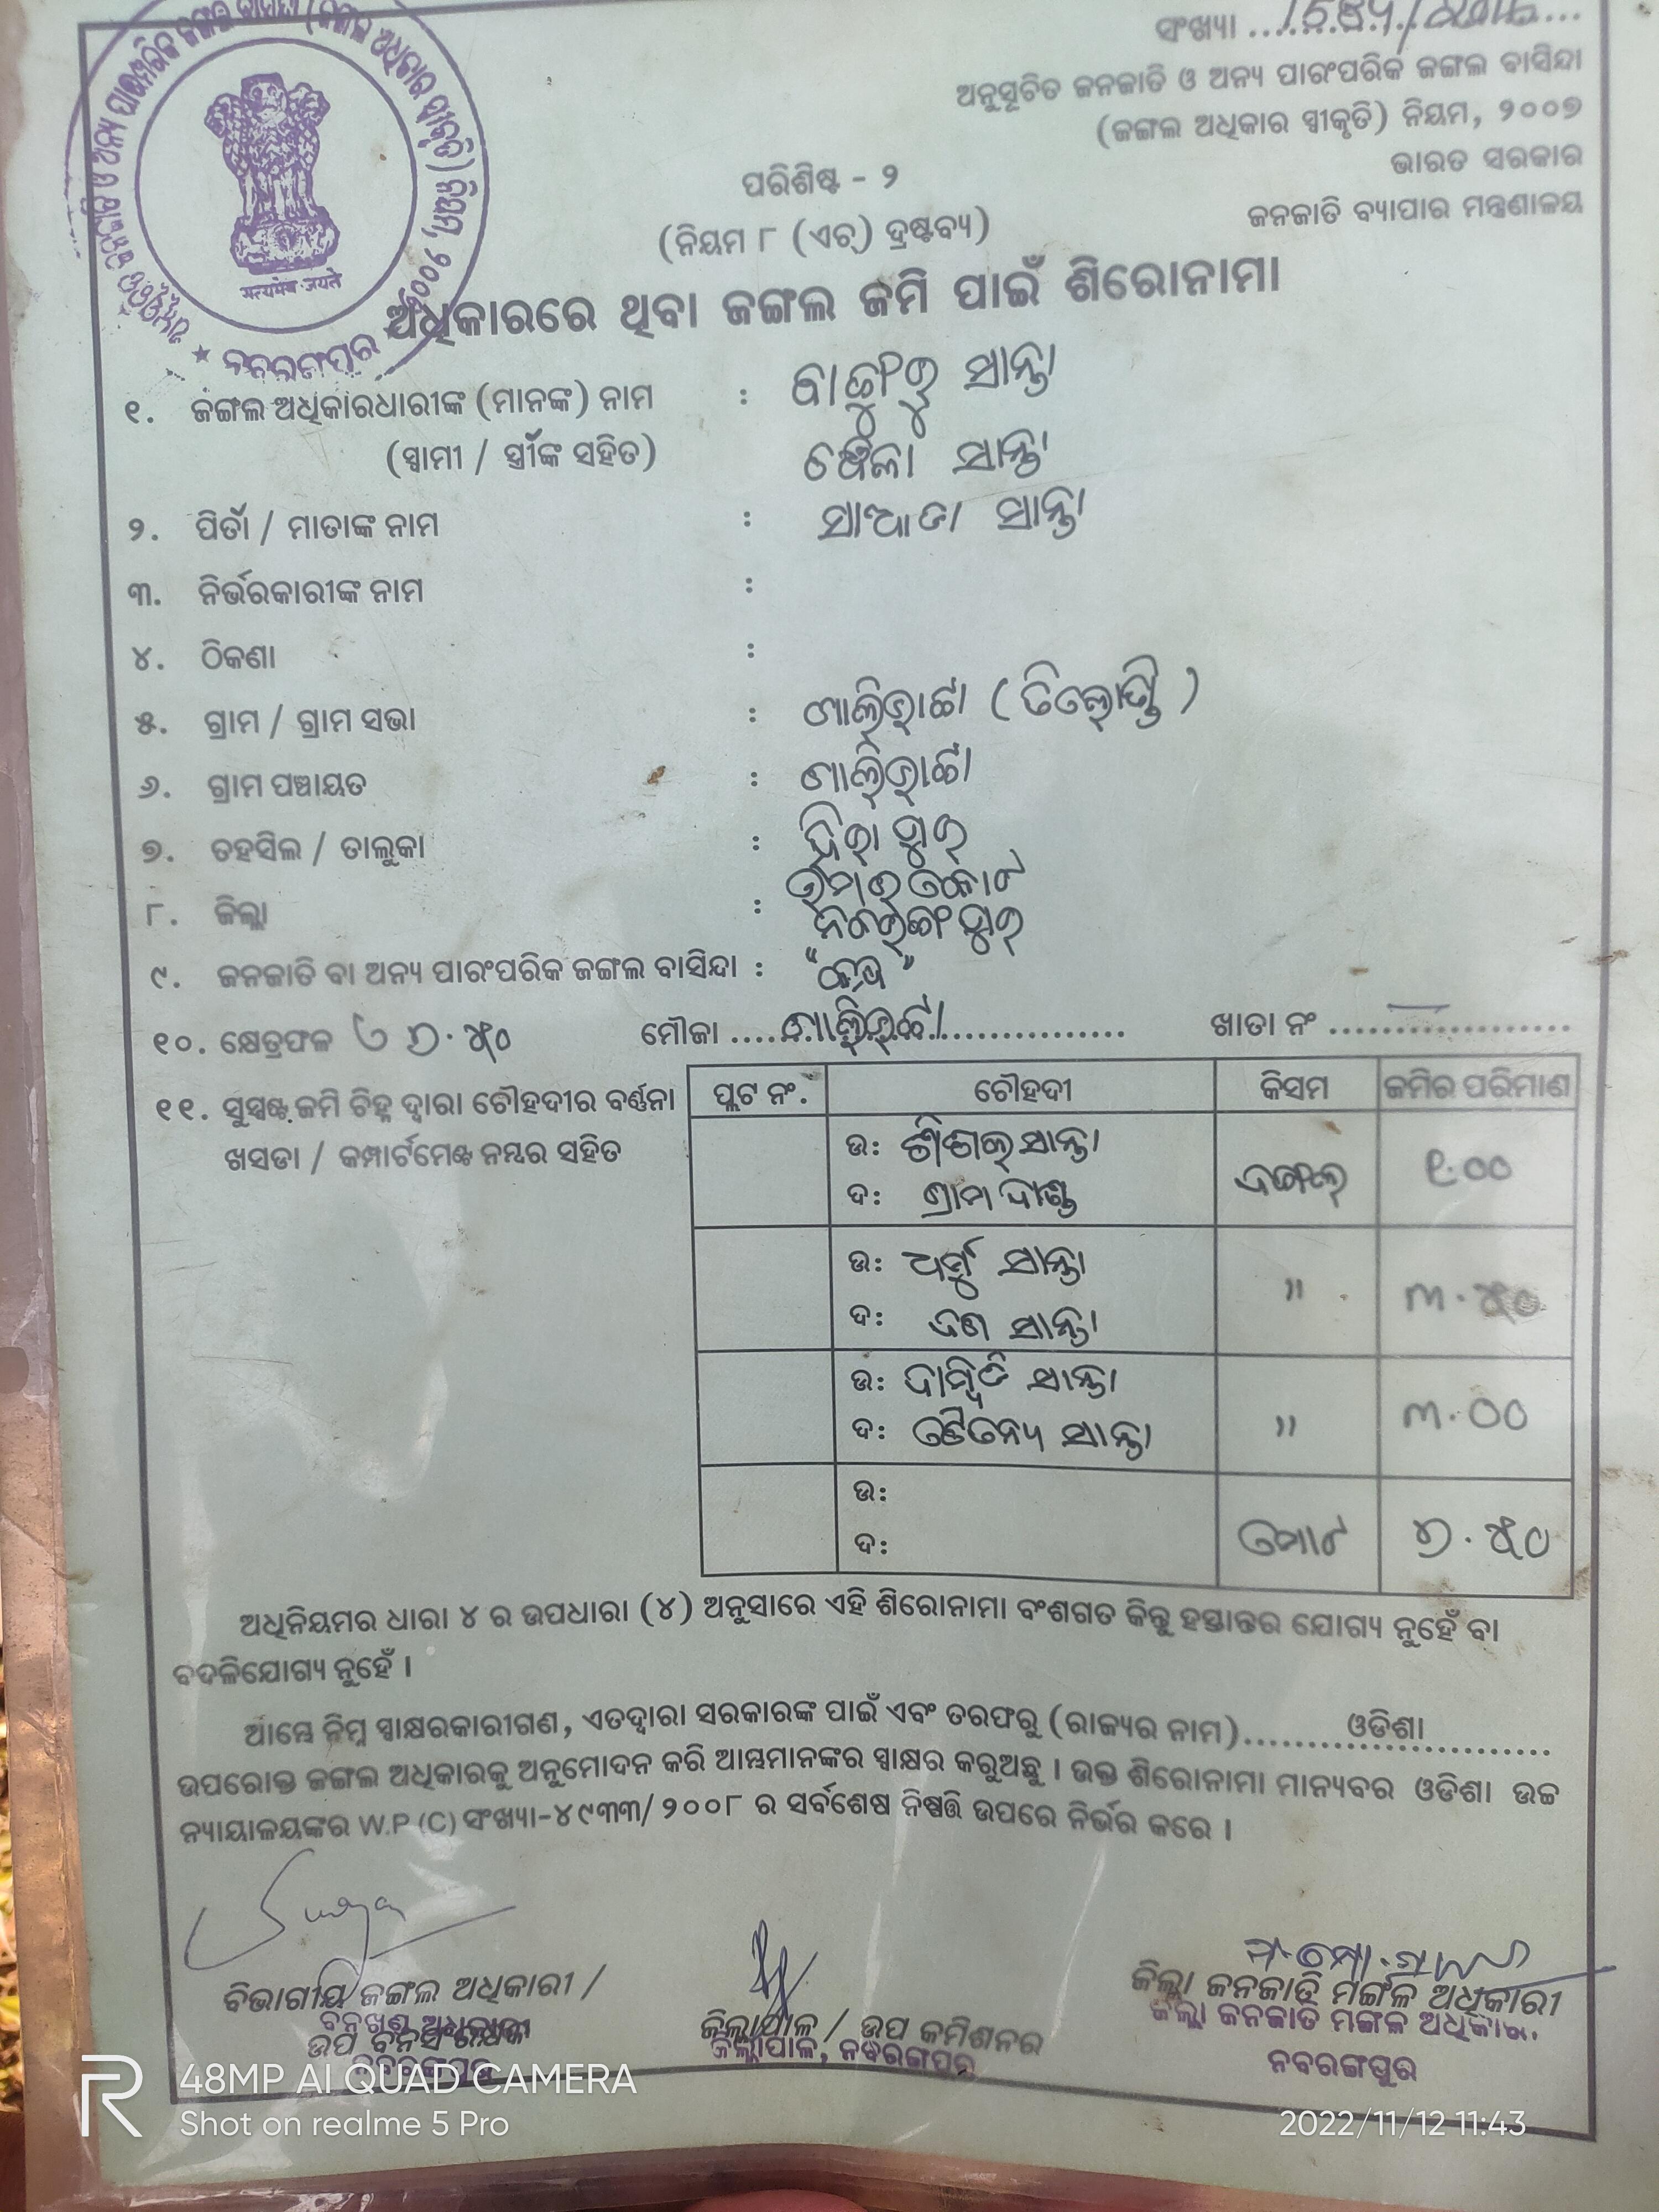 ସଂଖ୍ୟା
ଅନୁସୂଚିତ ଜନଜାତି ଓ ଅନ୍ୟ ପାରଂପରିକ ଜଙ୍ଗଲ ବାସିନ୍ଦା
(ଜଙ୍ଗଲ ଅଧିକାର ସ୍ୱୀକୃତି) ନିୟମ, ୨୦୦୭
ଭାରତ ସରକାର
ଜନଜାତି ବ୍ୟାପାର ମନ୍ତ୍ରଣାଳୟ
सत्यमेव जयते
ନବରଙ୍ଗପୁର
ପରିଶିଷ୍ଟ - ୨
(ନିୟମ ୮ (ଏଚ୍) ଦ୍ରଷ୍ଟବ୍ୟ)
ଅଧିକାରରେ ଥିବା ଜଙ୍ଗଲ ଜମି ପାଇଁ ଶିରୋନାମା
୧. ଜଙ୍ଗଲ ଅଧିକାରଧାରୀଙ୍କ (ମାନଙ୍କ) ନାମ : ସାନ୍ତା
(ସ୍ୱାମୀ / ସ୍ତ୍ରୀଙ୍କ ସହିତ) ସାନ୍ତା
୨. ପିତା / ମାତାଙ୍କ ନାମ : ସାନ୍ତା
୩. ନିର୍ଭରକାରୀଙ୍କ ନାମ :
୪. ଠିକଣା :
୫. ଗ୍ରାମ / ଗ୍ରାମ ସଭା :
୬. ଗ୍ରାମ ପଞ୍ଚାୟତ :
୭. ତହସିଲ / ତାଲୁକା :
ଉମରକୋଟ
୮. ଜିଲ୍ଲା : ନବରଙ୍ଗପୁର
୯. ଜନଜାତି ବା ଅନ୍ୟ ପାରଂପରିକ ଜଙ୍ଗଲ ବାସିନ୍ଦା :
୧୦. କ୍ଷେତ୍ରଫଳ ୭.୫୦ ମୌଜା ଖାତା ନଂ
୧୧. ସୁସ୍ପଷ୍ଟ ଜମି ଚିହ୍ନ ଦ୍ୱାରା ଚୌହଦୀର ବର୍ଣ୍ଣନା
ଖସଡା / କମ୍ପାର୍ଟମେଣ୍ଟ ନମ୍ବର ସହିତ
ପ୍ଲଟ ନଂ. ଚୌହଦୀ କିସମ ଜମିର ପରିମାଣ
ଉ: ସାନ୍ତା
ଦ: ଗ୍ରାମ ଦାଣ୍ଡ ଜଙ୍ଗଲ ୧.୦୦
ଉ: ଧର୍ମୁ ସାନ୍ତା
ଦ: ସାନ୍ତା " ୩.୫୦
ଉ: ସାନ୍ତା
ଦ: ଚୈତନ୍ୟ ସାନ୍ତା " ୩.୦୦
ଉ:
ଦ: ମୋଟ ୭.୫୦
ଅଧିନିୟମର ଧାରା ୪ ର ଉପଧାରା (୪) ଅନୁସାରେ ଏହି ଶିରୋନାମା ବଂଶଗତ କିନ୍ତୁ ହସ୍ତାନ୍ତର ଯୋଗ୍ୟ ନୁହେଁ ବା
ବଦଳିଯୋଗ୍ୟ ନୁହେଁ ।
ଆମ୍ଭେ ନିମ୍ନ ସ୍ୱାକ୍ଷରକାରୀଗଣ, ଏତଦ୍ୱାରା ସରକାରଙ୍କ ପାଇଁ ଏବଂ ତରଫରୁ (ରାଜ୍ୟର ନାମ) ଓଡିଶା
ଉପରୋକ୍ତ ଜଙ୍ଗଲ ଅଧିକାରକୁ ଅନୁମୋଦନ କରି ଆମ୍ଭମାନଙ୍କର ସ୍ୱାକ୍ଷର କରୁଅଛୁ । ଉକ୍ତ ଶିରୋନାମା ମାନ୍ୟବର ଓଡିଶା ଉଚ୍ଚ
ନ୍ୟାୟାଳୟଙ୍କର W.P (C) ସଂଖ୍ୟା-୪୯୩୩/୨୦୦୮ ର ସର୍ବଶେଷ ନିଷ୍ପତ୍ତି ଉପରେ ନିର୍ଭର କରେ ।
ବିଭାଗୀୟ ଜଙ୍ଗଲ ଅଧିକାରୀ /
ବନଖଣ୍ଡ ଅଧିକାରୀ
ଉପ ବନସଂରକ୍ଷକ
ନବରଙ୍ଗପୁର
ଜିଲ୍ଲାପାଳ / ଉପ କମିଶନର
ଜିଲ୍ଲାପାଳ, ନବରଙ୍ଗପୁର
ଜିଲ୍ଲା ଜନଜାତି ମଙ୍ଗଳ ଅଧିକାରୀ
ଜିଲ୍ଲା ଜନଜାତି ମଙ୍ଗଳ ଅଧିକାରୀ
ନବରଙ୍ଗପୁର
48MP AI QUAD CAMERA
Shot on realme 5 Pro
2022/11/12 11:43